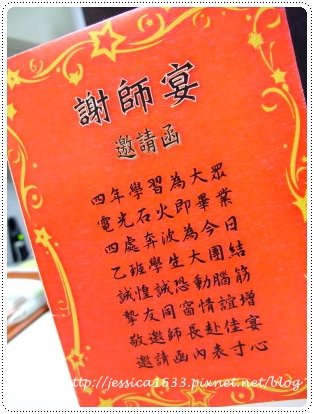 謝師宴
邀請函
四年學習為大眾
電光石火即畢業
四處奔波為今日
乙班學生大團結
誠惶誠恐動腦筋
摯友同窗情誼增
敬邀師長赴佳宴
邀請函內表寸心
http://jessica1633.pixnet.net/blog